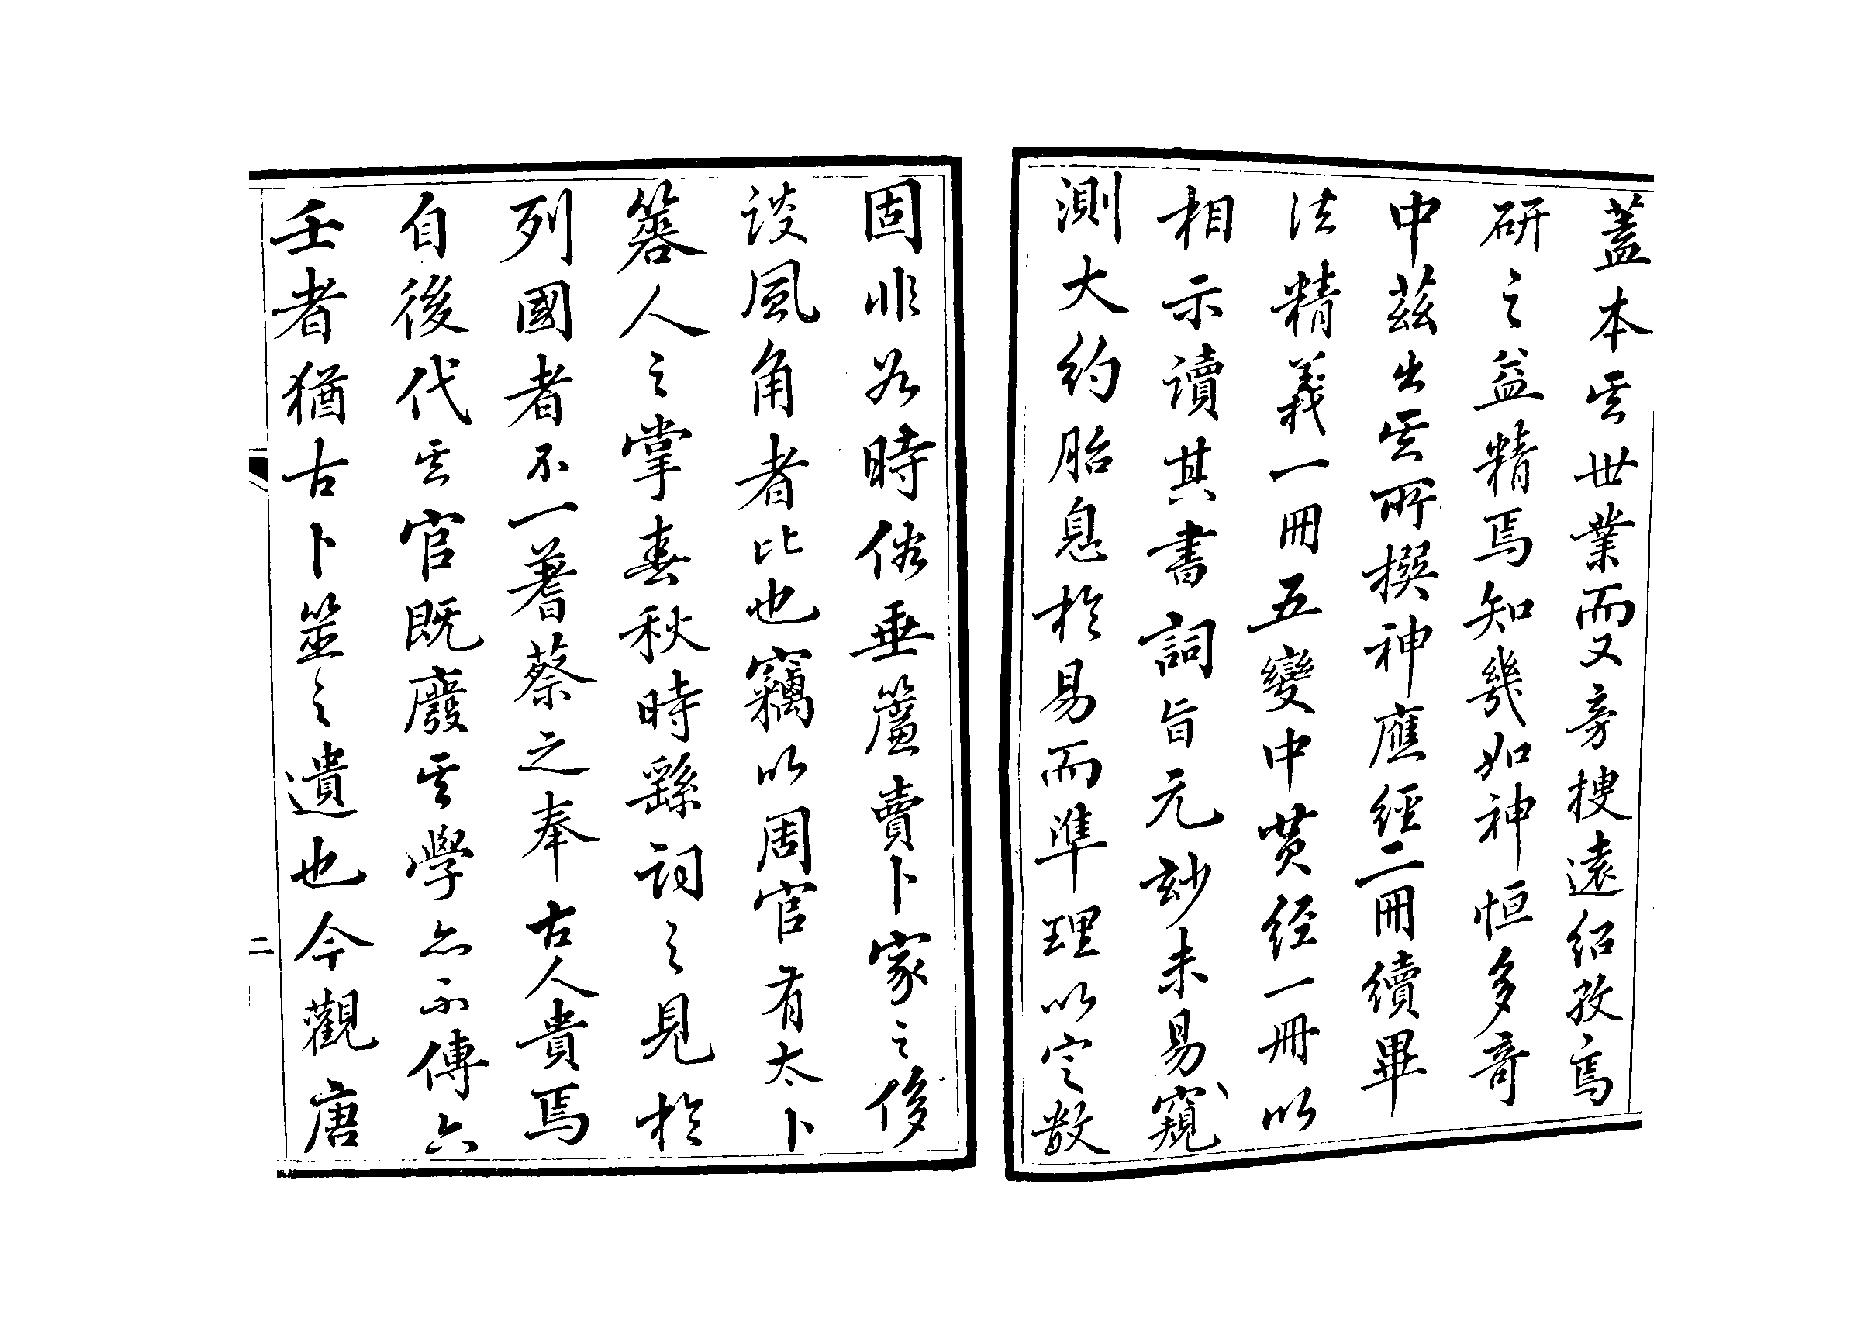 蓋本其世業而又旁搜遠紹孜焉
研之益精焉知幾如神恒多奇
中茲出其所撰神應經二冊續畢
法精義一冊五變中黃经一冊以
相示讀其書詞旨元妙未易窺
測大約胎息於易而準理以定數
固非若時俗垂簾賣卜家之侈
談風角者比也竊以周官有太卜
簭人之掌春秋時繇詞之見於
列國者不一蓍蔡之奉古人貴焉
自後代其官既廢其學亦不傳六
壬者猶古卜筮之遺也今觀唐
二